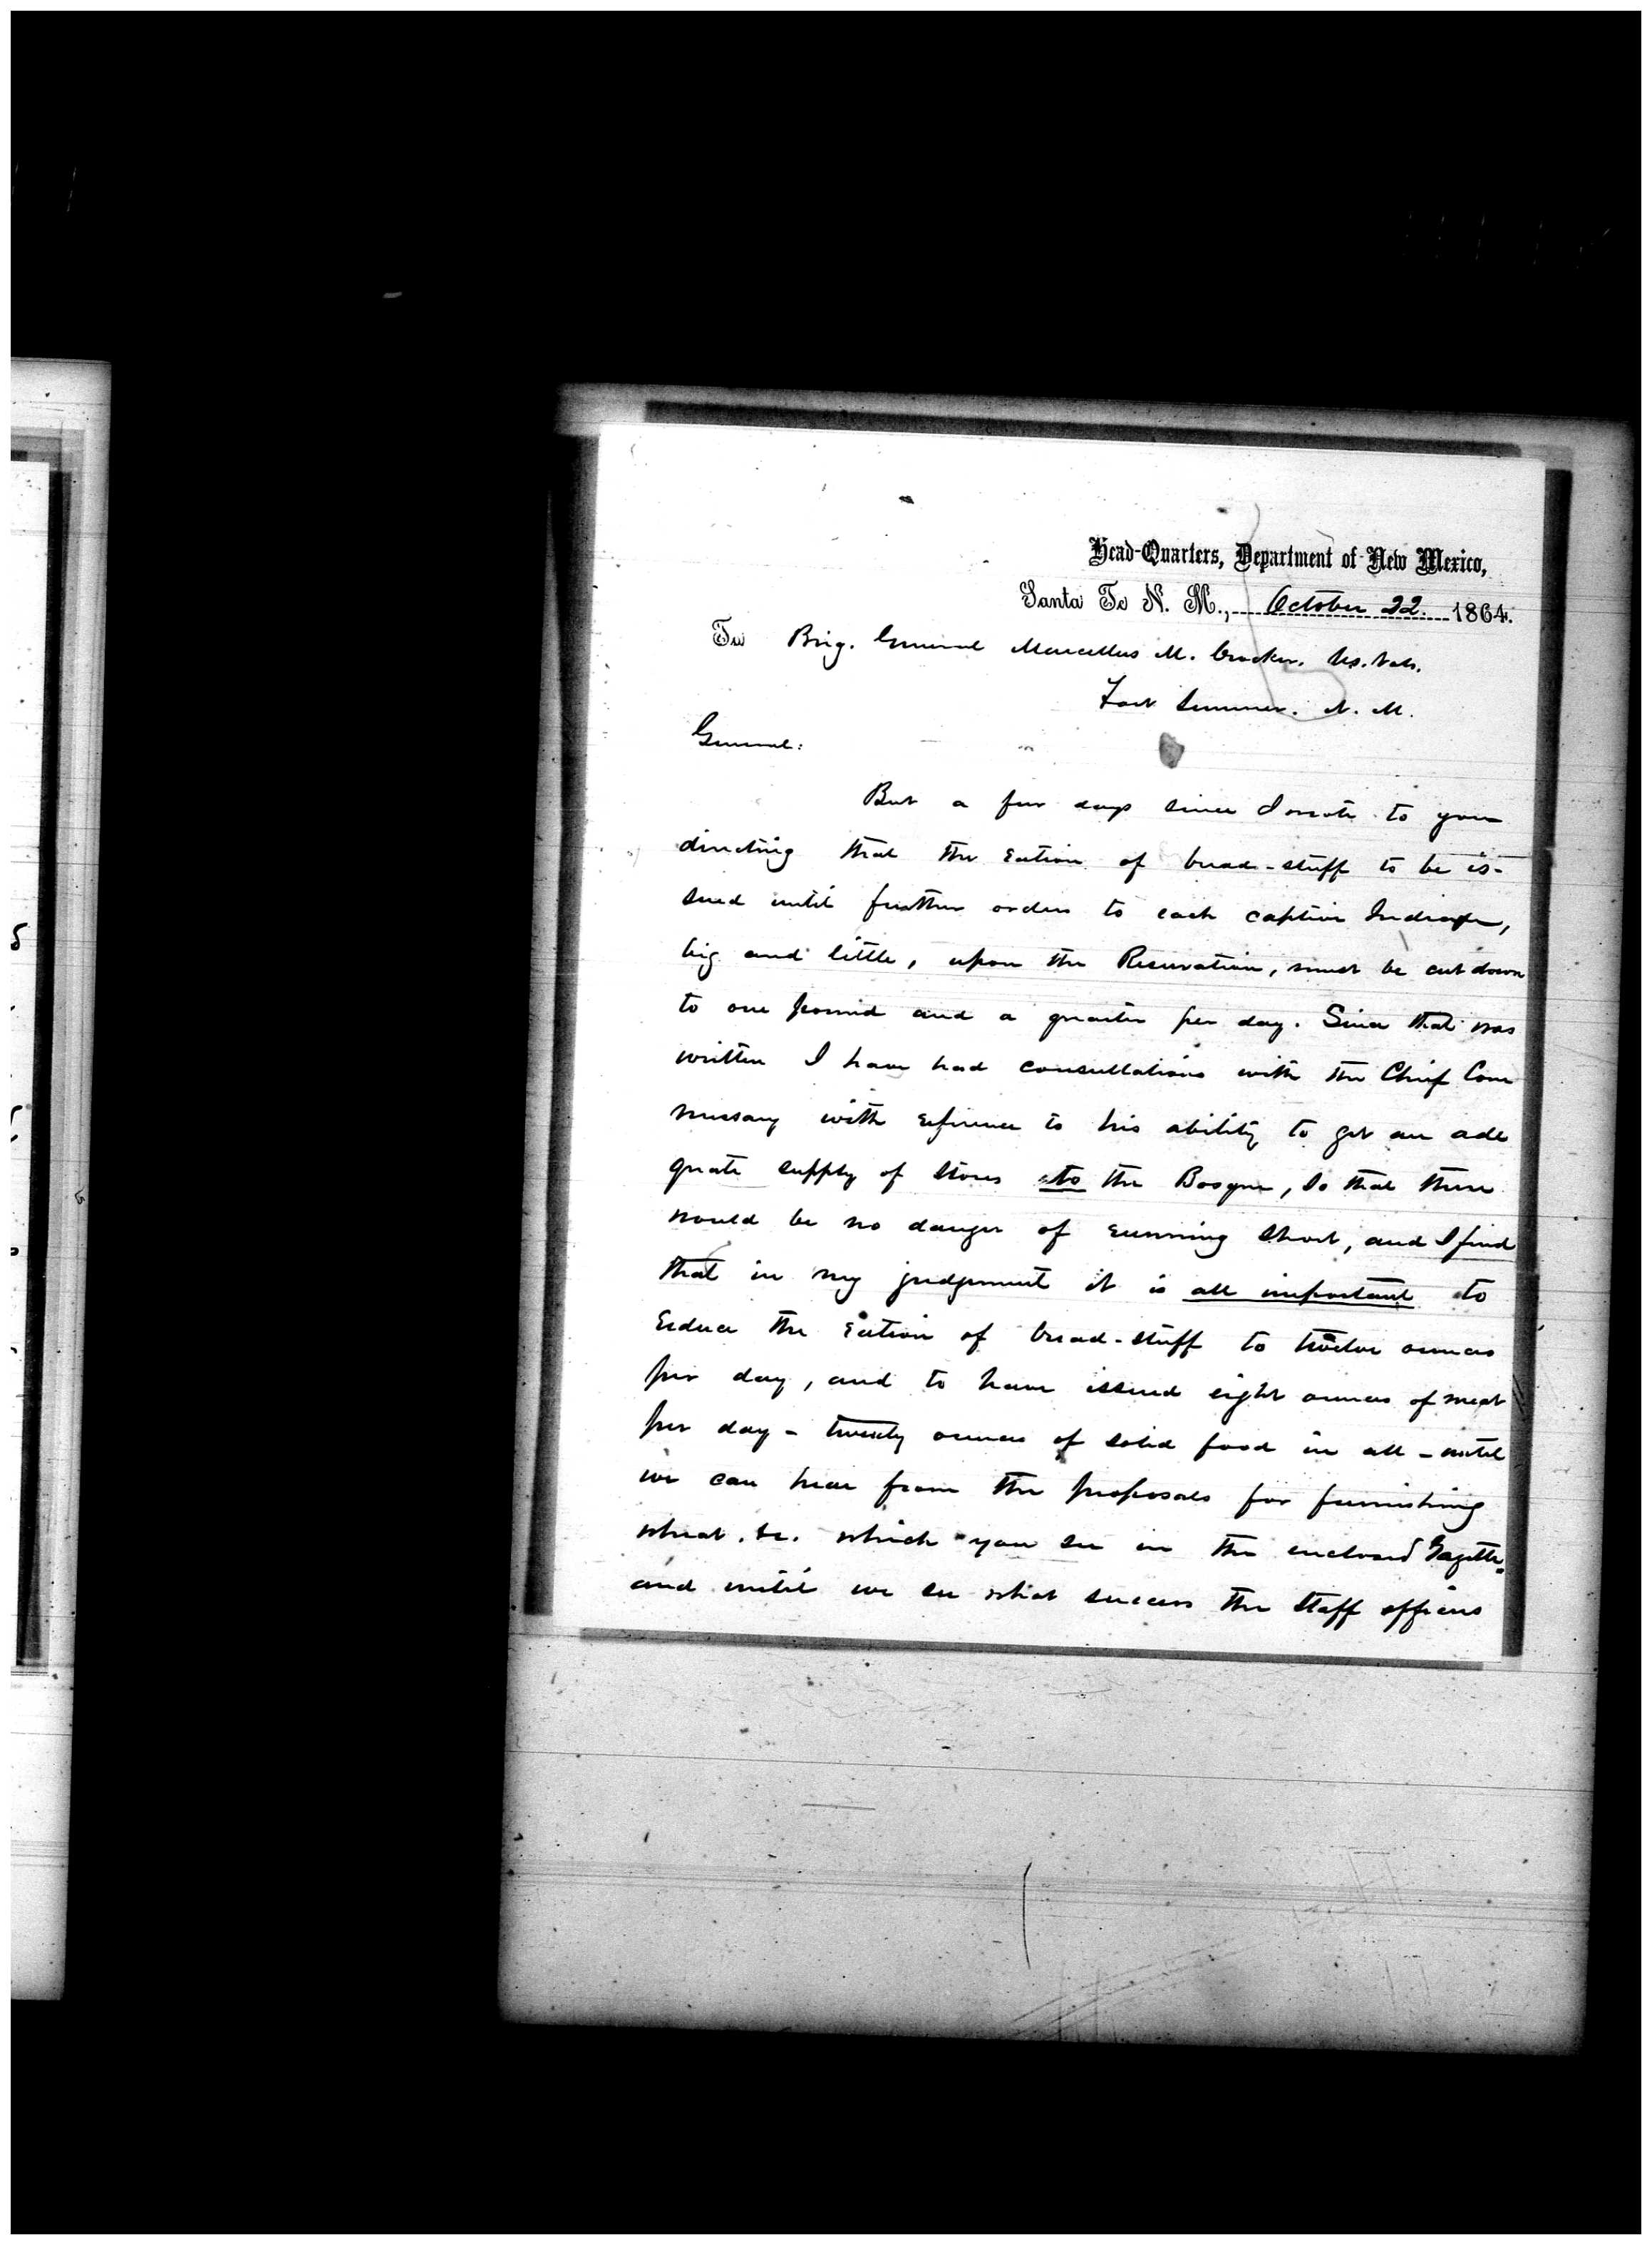 Head-Quarters, Department of New Mexico,
Santa Fe N. M., October 22. 1864.
To Brig. General Marcellus M. Crocker. Us. Vols.
Fort Sumner. N. M.
General:
But a few days since I wrote to you
directing that the ration of bread-stuff to be is-
sued until further orders to each captive Indian,
big and little, upon the Reservation, must be cut down
to one pound and a quarter per day. Since that was
written I have had consultations with the Chief Com
missary with reference to his ability to get an ade
quate supply of stores to the Bosque, so that there
would be no danger of running short, and I find
that in my judgement it is all important to
reduce the ration of bread-stuff to twelve ounces
per day, and to have issued eight ounces of meat
per day - twenty ounces of solid food in all - until
we can hear from the proposals for furnishing
wheat. &c. which you see in the enclosed Gazette
and until we see what success the staff officers